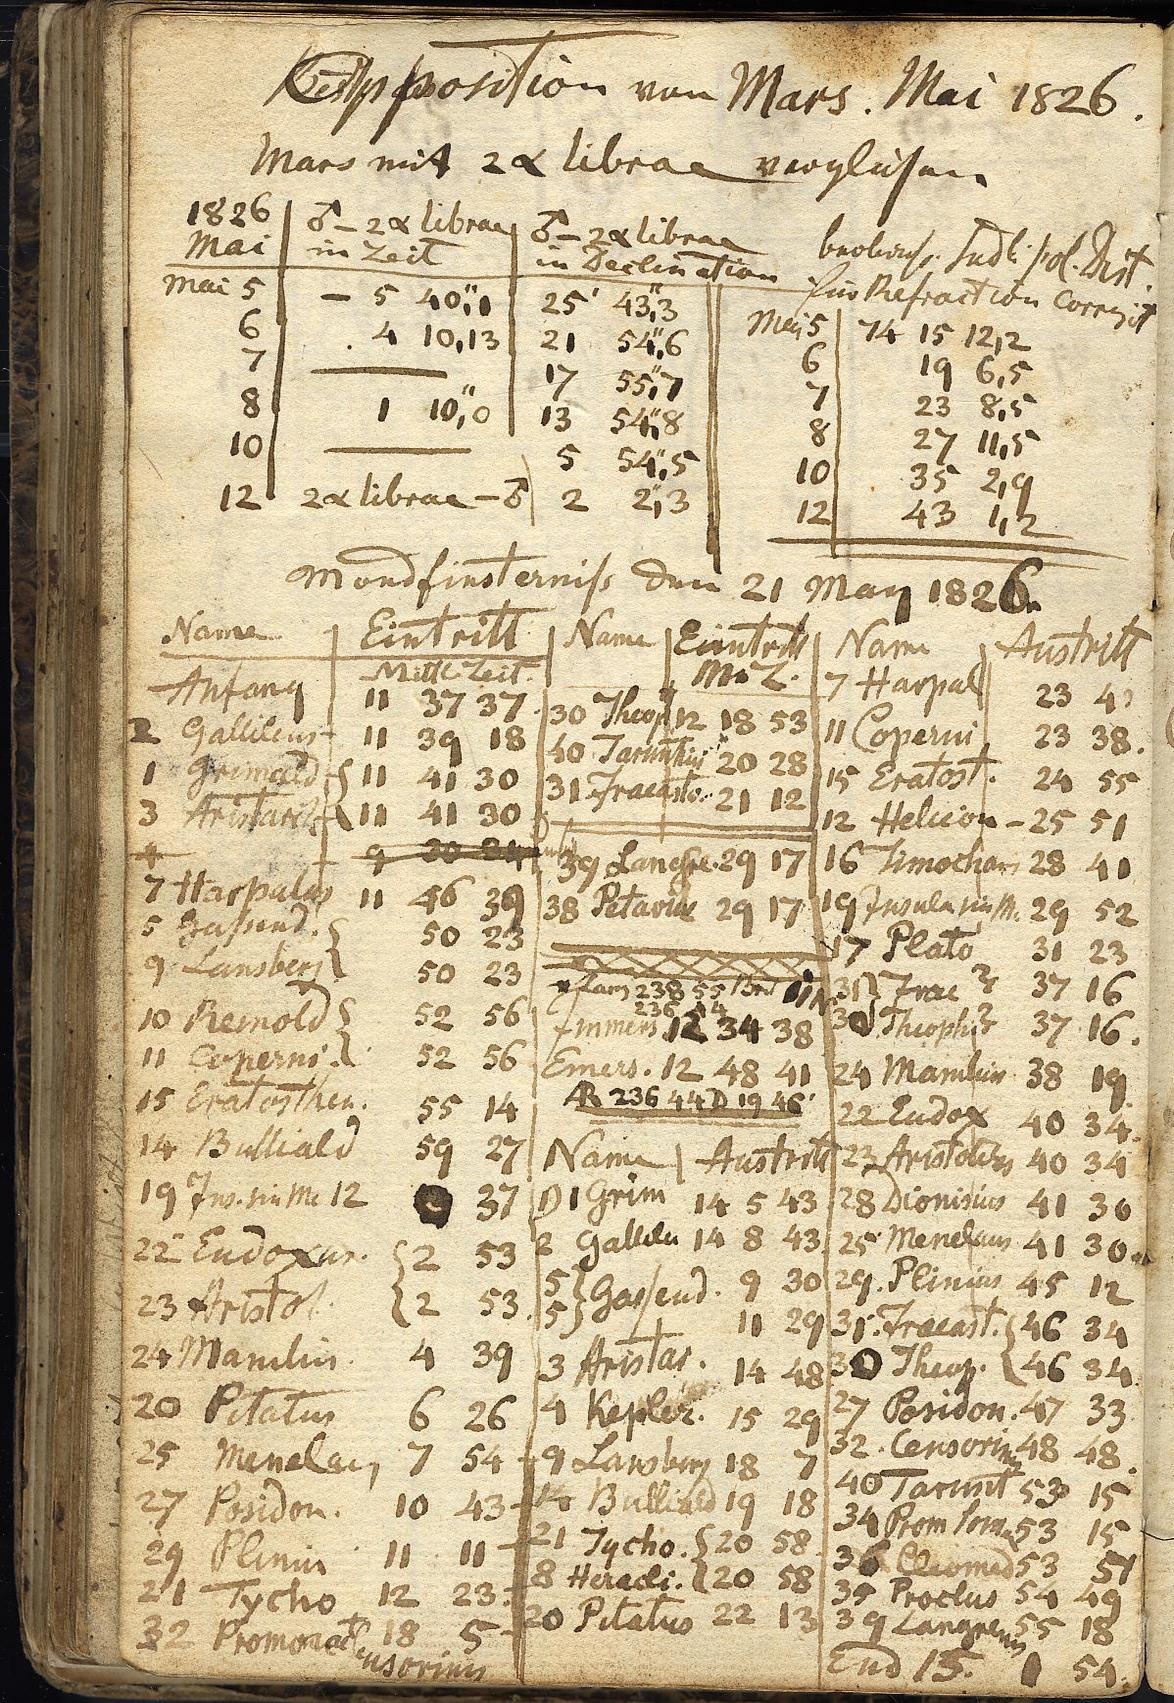 Opposition von Mars. Mai 1826.
Mars mit 2α librae verglichen
1826 Mai | ♂ – 2α librae in Zeit | ♂ – 2α librae in Declination
Mai 5 | – 5 40,"1 | 25' 43,"3
6 | . 4 10,13 | 21 54,"6
7 | —— | 17 55,"7
8 | 1 10,"0 | 13 54,"8
10 | —— | 5 54,"5
12 | 2α librae – ♂ | 2 2,"3
beobacht. Südl. pol. Dist.
für Refraction Corregirt
Mai 5 | 74 15 12,2
6 | 19 6,5
7 | 23 8,5
8 | 27 11,5
10 | 35 2,9
12 | 43 1,2
Mondfinsterniss den 21 May 1826.
Name | Eintritt
Mittl. Zeit.
Anfang 11 37 37
2 Gallileus 11 39 18
1 Grimald { 11 41 30
3 Aristarch { 11 41 30
7 Harpalus 11 46 39
5 Gassend. } 50 23
9 Lansberg } 50 23
10 Reinold } 52 56
11 Coperni. } 52 56
15 Eratosthen. 55 14
14 Bulliald 59 27
19 Ins. sin Me 12 37
22 Eudoxus. { 2 53
23 Aristot. { 2 53
24 Manilius. 4 39
20 Pitatus 6 26
25 Menelaus 7 54
27 Posidon. 10 43
29 Plinius 11 11
21 Tycho 12 23
32 Promonat Censorinus 18 5
Name | Eintritt
M. Z.
30 Theop 12 18 53
40 Taruntius 20 28
31 Fracasto. 21 12
39 Langre. 29 17
38 Petavius 29 17
238 55
236 44
Immers 12 34 38
Emers. 12 48 41
AR 236 44 D 19 46'
Name | Austritt
D 1 Grim 14 5 43
2 Gallileu 14 8 43
5 } Gassend. 9 30
5 } 11 29
3 Aristar. 14 48
4 Kepler. 15 29
9 Lansberg 18 7
14 Bulliald 19 18
21 Tycho. { 20 58
8 Heracli. { 20 58
20 Pitatus 22 13
Name | Austritt
7 Harpal 23 4
11 Coperni 23 38.
15 Eratost. 24 55
12 Helicon – 25 51
16 Timochars 28 41
19 Insula sin M. 29 52
17 Plato 31 23
31 Frac ? 37 16
30 Theoph ? 37 16.
24 Manilius 38 19
22 Eudox 40 34.
23 Aristoteles 40 34
28 Dionisius 41 30
25 Menelaus 41 30
29. Plinius 45 12
31. Fracast. { 46 34
30 Theop. { 46 34
27 Posidon. 47 33
32. Censorinus 48 48.
40 Tarunt 53 15
34 Prom Somn 53 15
36 Cleomed 53 51
35 Proclus 54 49
39 Langrenus 55 18
End 15. 1 54.